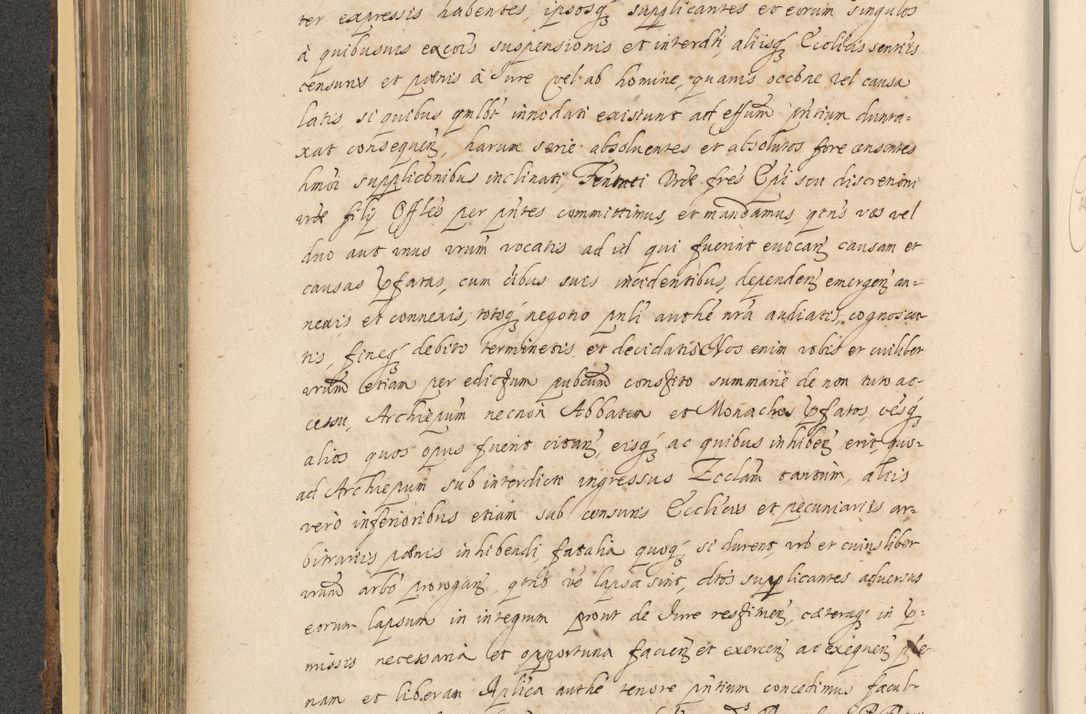 ter expressis habentes, ipsosq₃ supplicantes et eorum singulos
à quibusuis excõis suspensionis et interdti, aliisq₃ Ecclãis sentẽis
censuris et pœnis à Jure vel ab homine, quauis occõne vel causa
latis si quibus qmlõt innodati existunt ad effum pñtium dunta=
xat consequeñ, harum serie absoluentes et absolutos fore censentes
hmõi supplicõnibus inclinati, Vrẽ frẽs Epĩ seu discretioni
vrẽ filij Offlẽs per pñtes committimus, et mandamus qtñs vos vel
duo aut vnus vrum vocatis ad id qui fuerint euocañ causam et
causas pfatas, cum õibus suis incidentibus, dependeñ emergeñ an=
nexis et connexis, totoq₃ negotio pnli authẽ nrã audiatis, cognoscat
tis, fineq₃ debito terminetis, et decidatis Nos enim vobis et cuilibet
vrum etiam per edictum pubcum constito summariè de non tuto ac=
cessu, Archiepum necnon Abbatem et Monachos pfatos, oẽsq₃
alios quos opus fuerit citañ, eisq₃ ac quibus inhibeñ erit, quo=
ad Archiepum sub interdicto ingressus Ecclãm tantùm, aliis
verò inferioribus etiam sub censuris Ecclicis et pecuniariis ar=
bitrariis pœnis inhibendi fatalia quoq₃ si durent vrõ et cuiuslibet
vrum arbõ prorogañ, qtñs vẽ lapsa sint, dtos supplicantes aduersus
eorum lapsum in integrum prout de Jure restitueñ, cæteraq₃ in p=
missis necessaria et opportuna facieñ et exerceñ ac exequeñ ple
nam et liberam Aplica authẽ tenore pñtium concedimus facul=